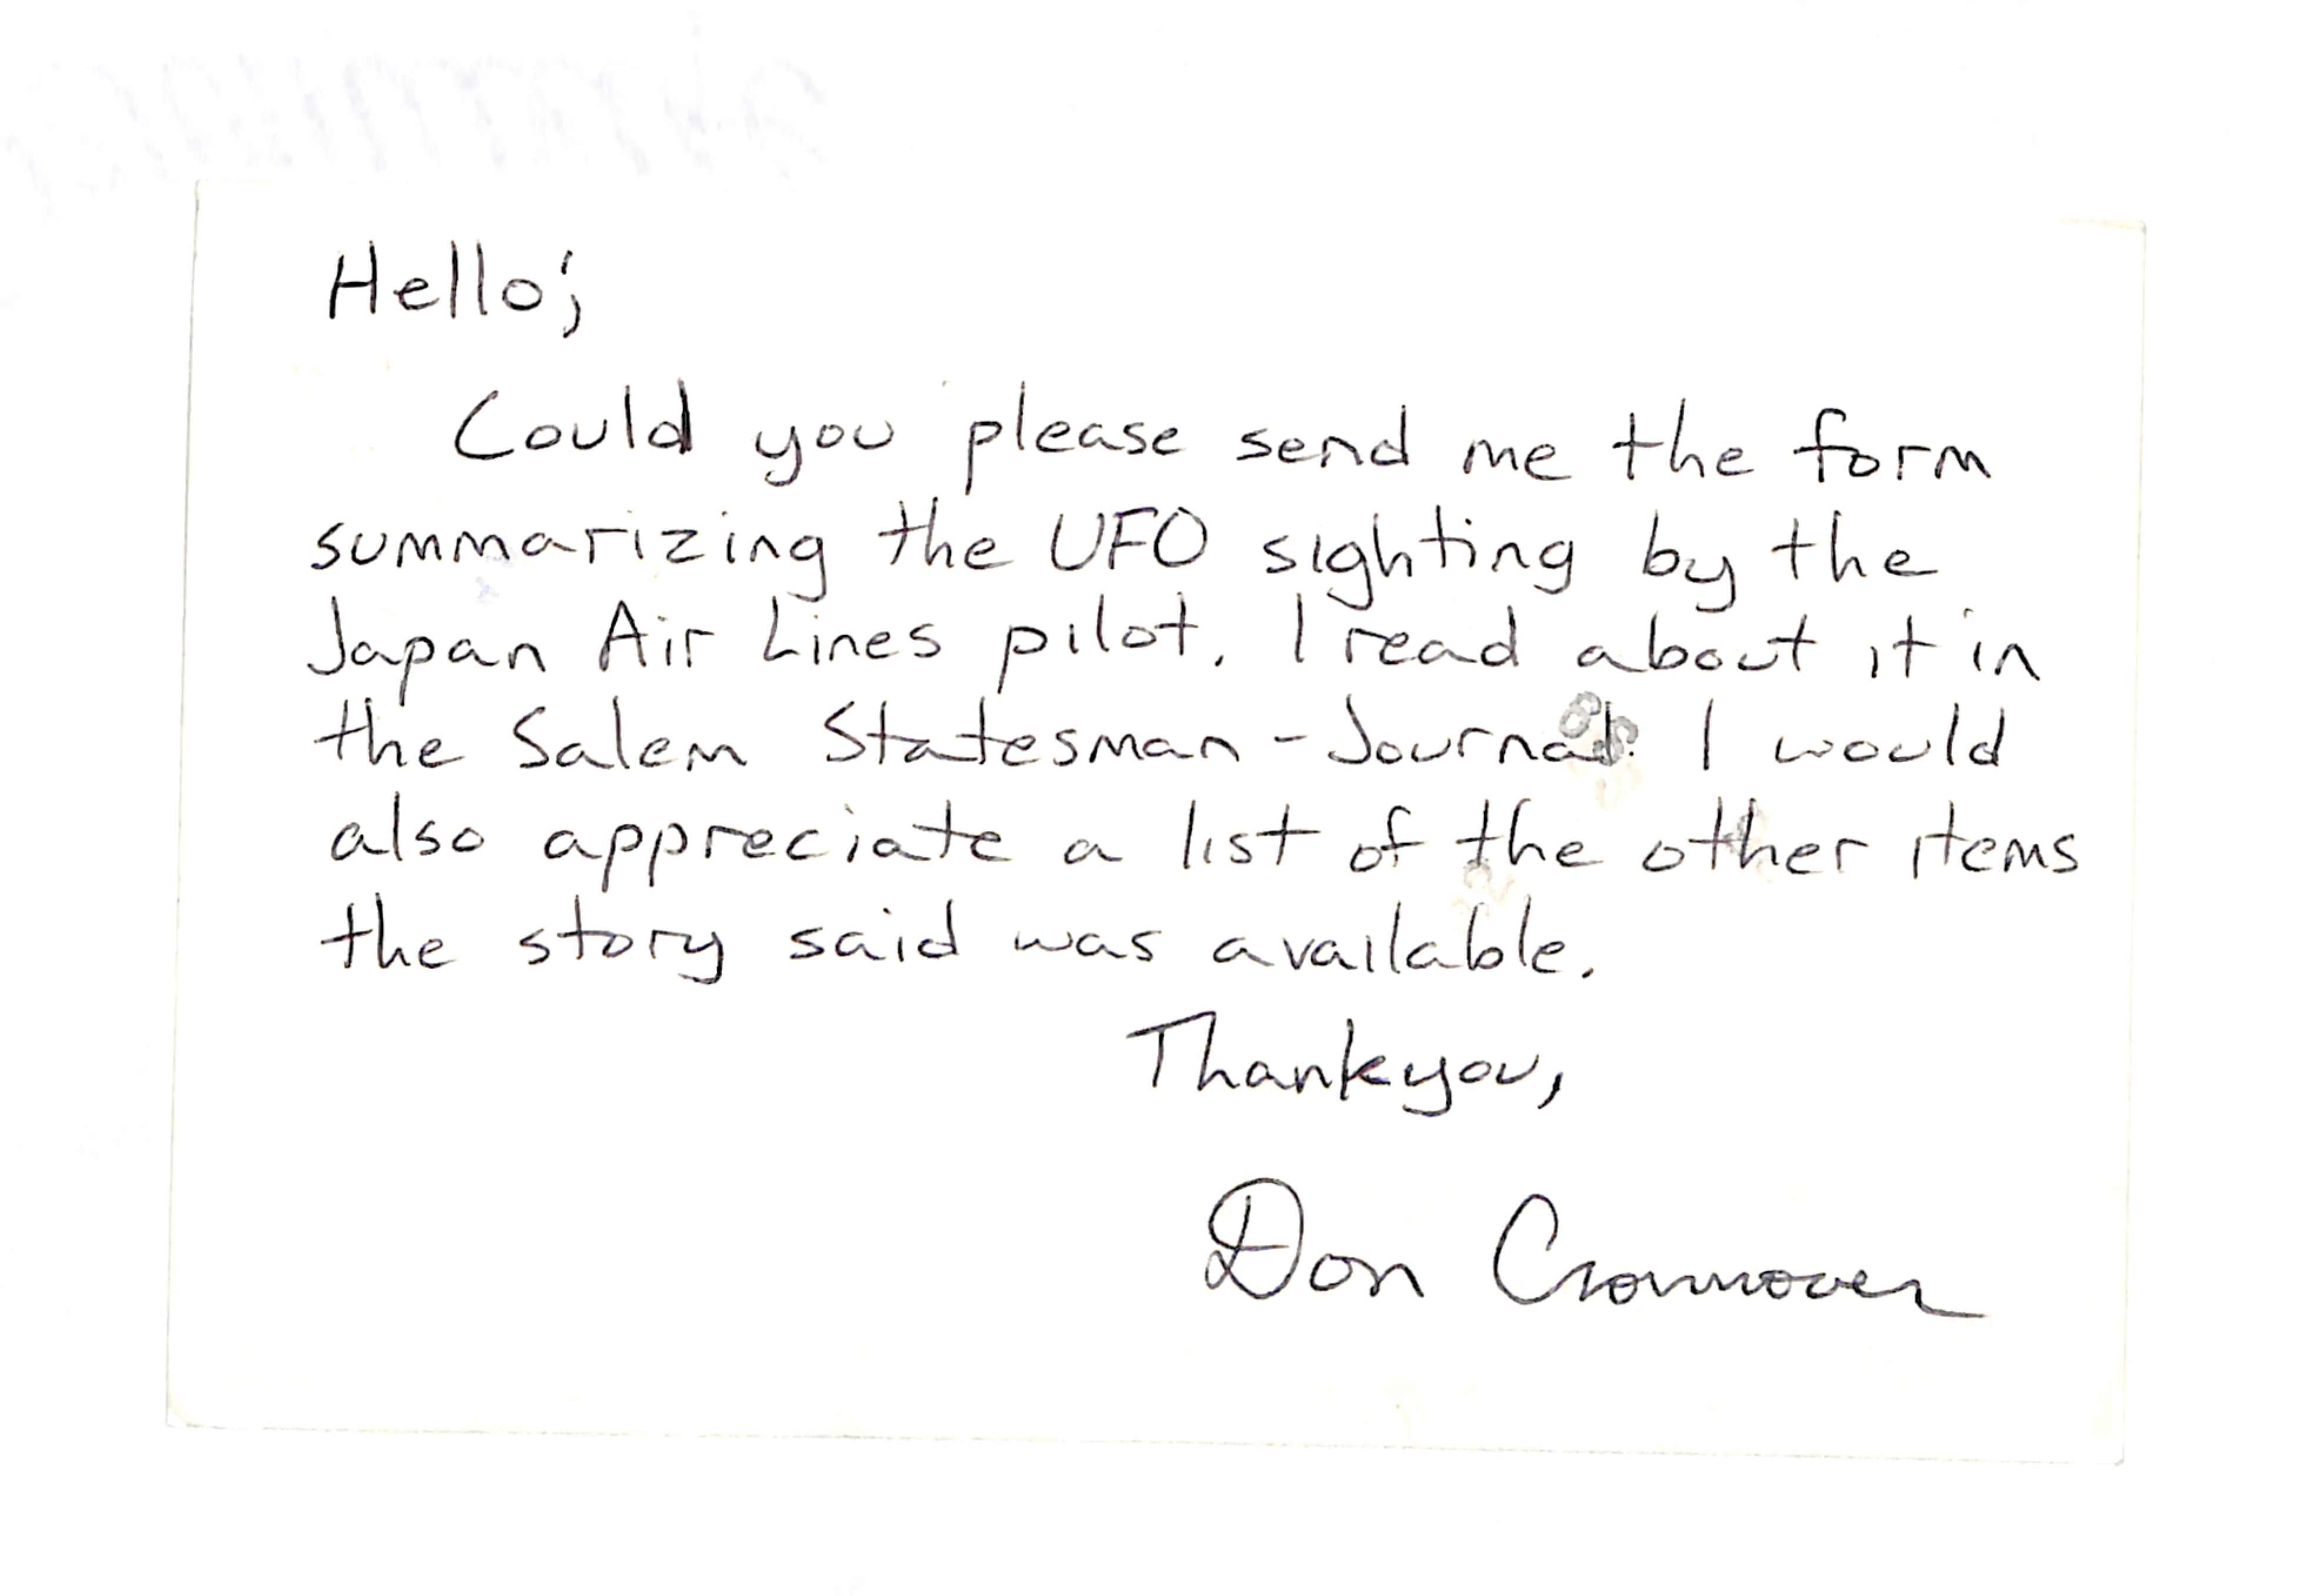 Hello;
Could you please send me the form
summarizing the UFO sighting by the
Japan Air Lines pilot. I read about it in
the Salem Statesman-Journal. I would
also appreciate a list of the other items
the story said was available.
Thankyou,
Don